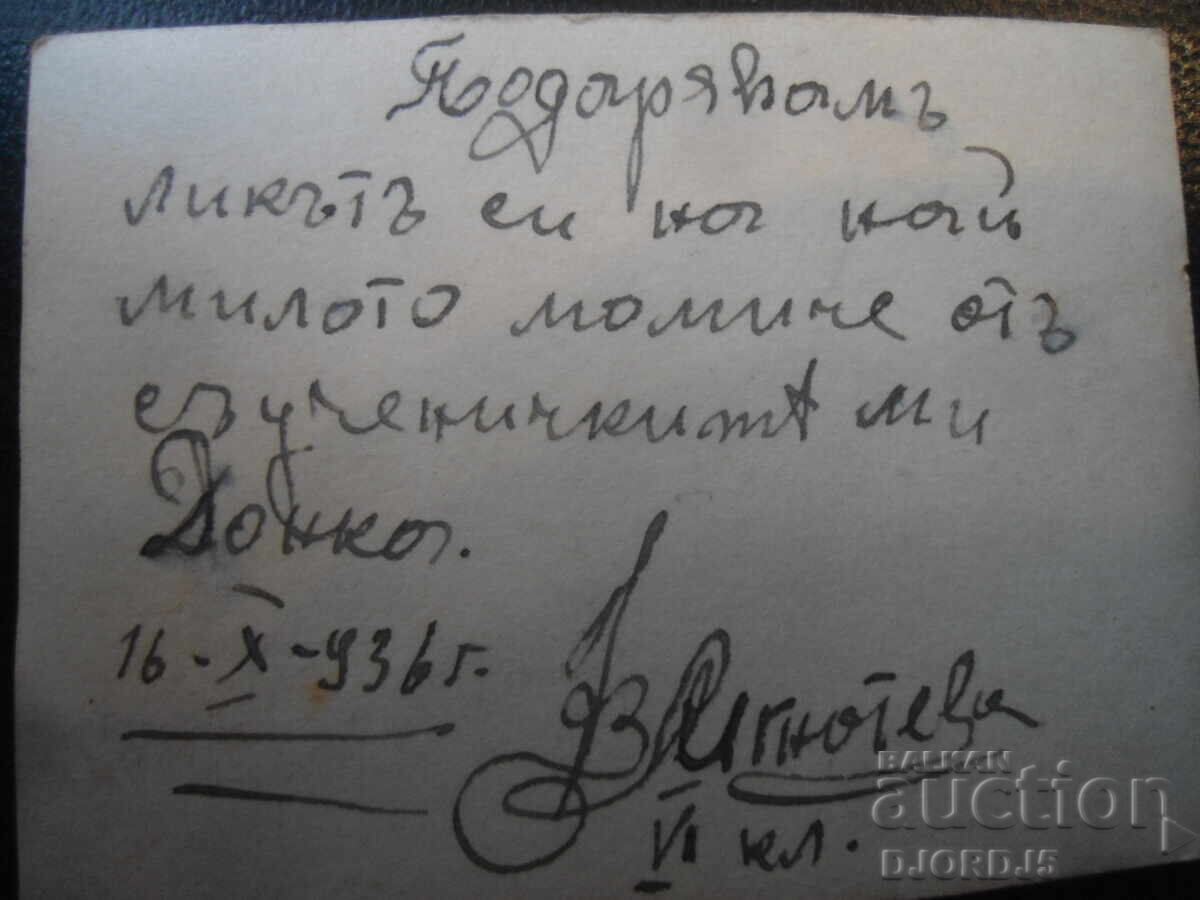 Подарявамъ
ликътъ си на най
милото момиче отъ
съученичкитѣ ми
Донка.
16-X-936 г.
В
VI кл.
BALKAN
auction
DJORDJ5